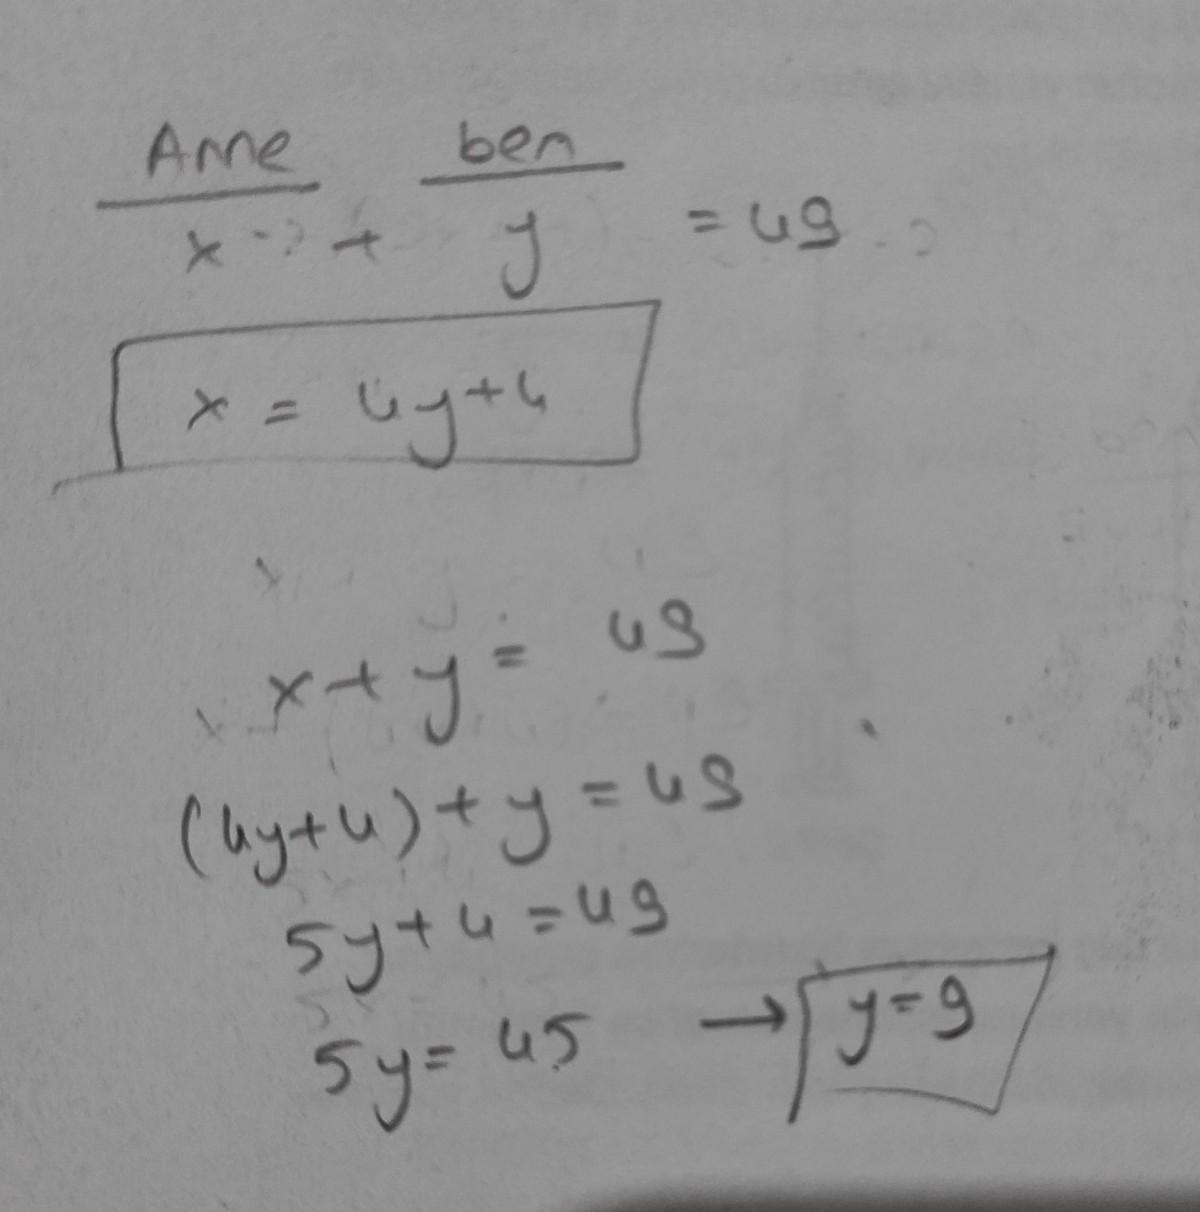 Anne ben
x + y = 49
x = 4y+4
x+y = 49
(4y+4)+y = 49
5y+4 = 49
5y = 45 → y=9